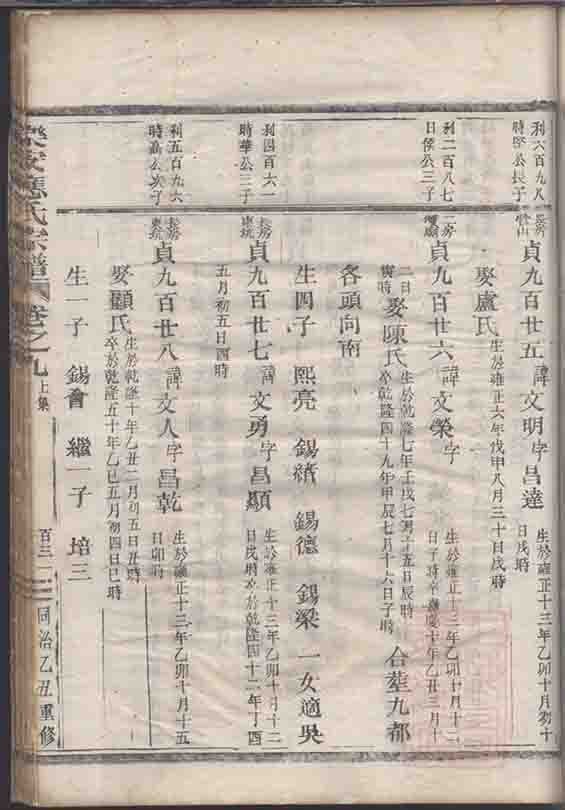 利六百九八
時 公長子
貞九百廿五 諱文明 字昌達
生於雍正十三年乙卯十月初十
日戌時
娶盧氏 生於雍正六年戊申八月三十日戌時
利二百八七
日侯公三子
二房
貞九百廿六 諱文榮 字
生於雍正十三年乙卯十月十二
日子時卒 慶十年乙丑三月十
二日
寅時
娶陳氏
生於乾隆七年壬戌七月十五日辰時
卒乾隆四十九年甲辰七月十六日子時
合葬九都
各頭向南
生四子 熙亮 錫績 錫德 錫梁 一女適吳
利四百六一
時華公三子
長房
東坑
貞九百廿七 諱文勇 字昌顯
生於雍正十三年乙卯十月十二
日戌時卒於乾隆四十二年丁酉
五月初五日酉時
利五百九六
時高公次子
長房
東坑
貞九百廿八 諱文人 字昌乾
生於雍正十三年乙卯十月十五
日卯時
娶顧氏
生於乾隆十年乙丑二月初五日丑時
卒於乾隆五十年乙巳五月初四日巳時
生一子 錫會 繼一子 培三
樂安 氏宗譜 卷之九 上集 百三一 同治乙丑重修